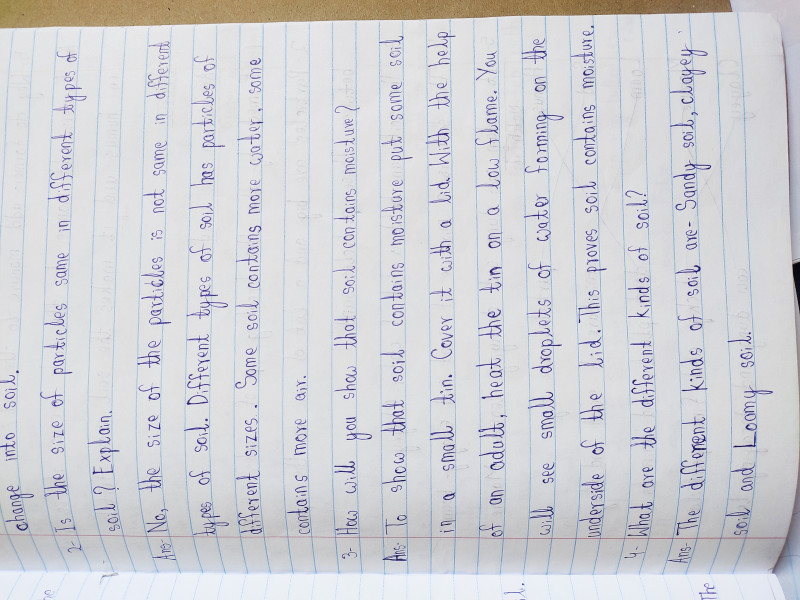 change into soil.
2- Is the size of particles same in different types of
soil? Explain.
Ans- No, the size of the particles is not same in different
types of soil. Different types of soil has particles of
different sizes. Some soil contains more water. some
contains more air.
3- How will you show that soil contains moisture?
Ans- To show that soil contains moisture put some soil
in a small tin. Cover it with a lid With the help
of an adult, heat the tin on a low flame. You
will see small droplets of water forming on the
underside of the lid. This proves soil contains moisture.
4- What are the different kinds of soil?
Ans- The different kinds of soil are- Sandy soil, clayey
soil and Loamy soil.
The